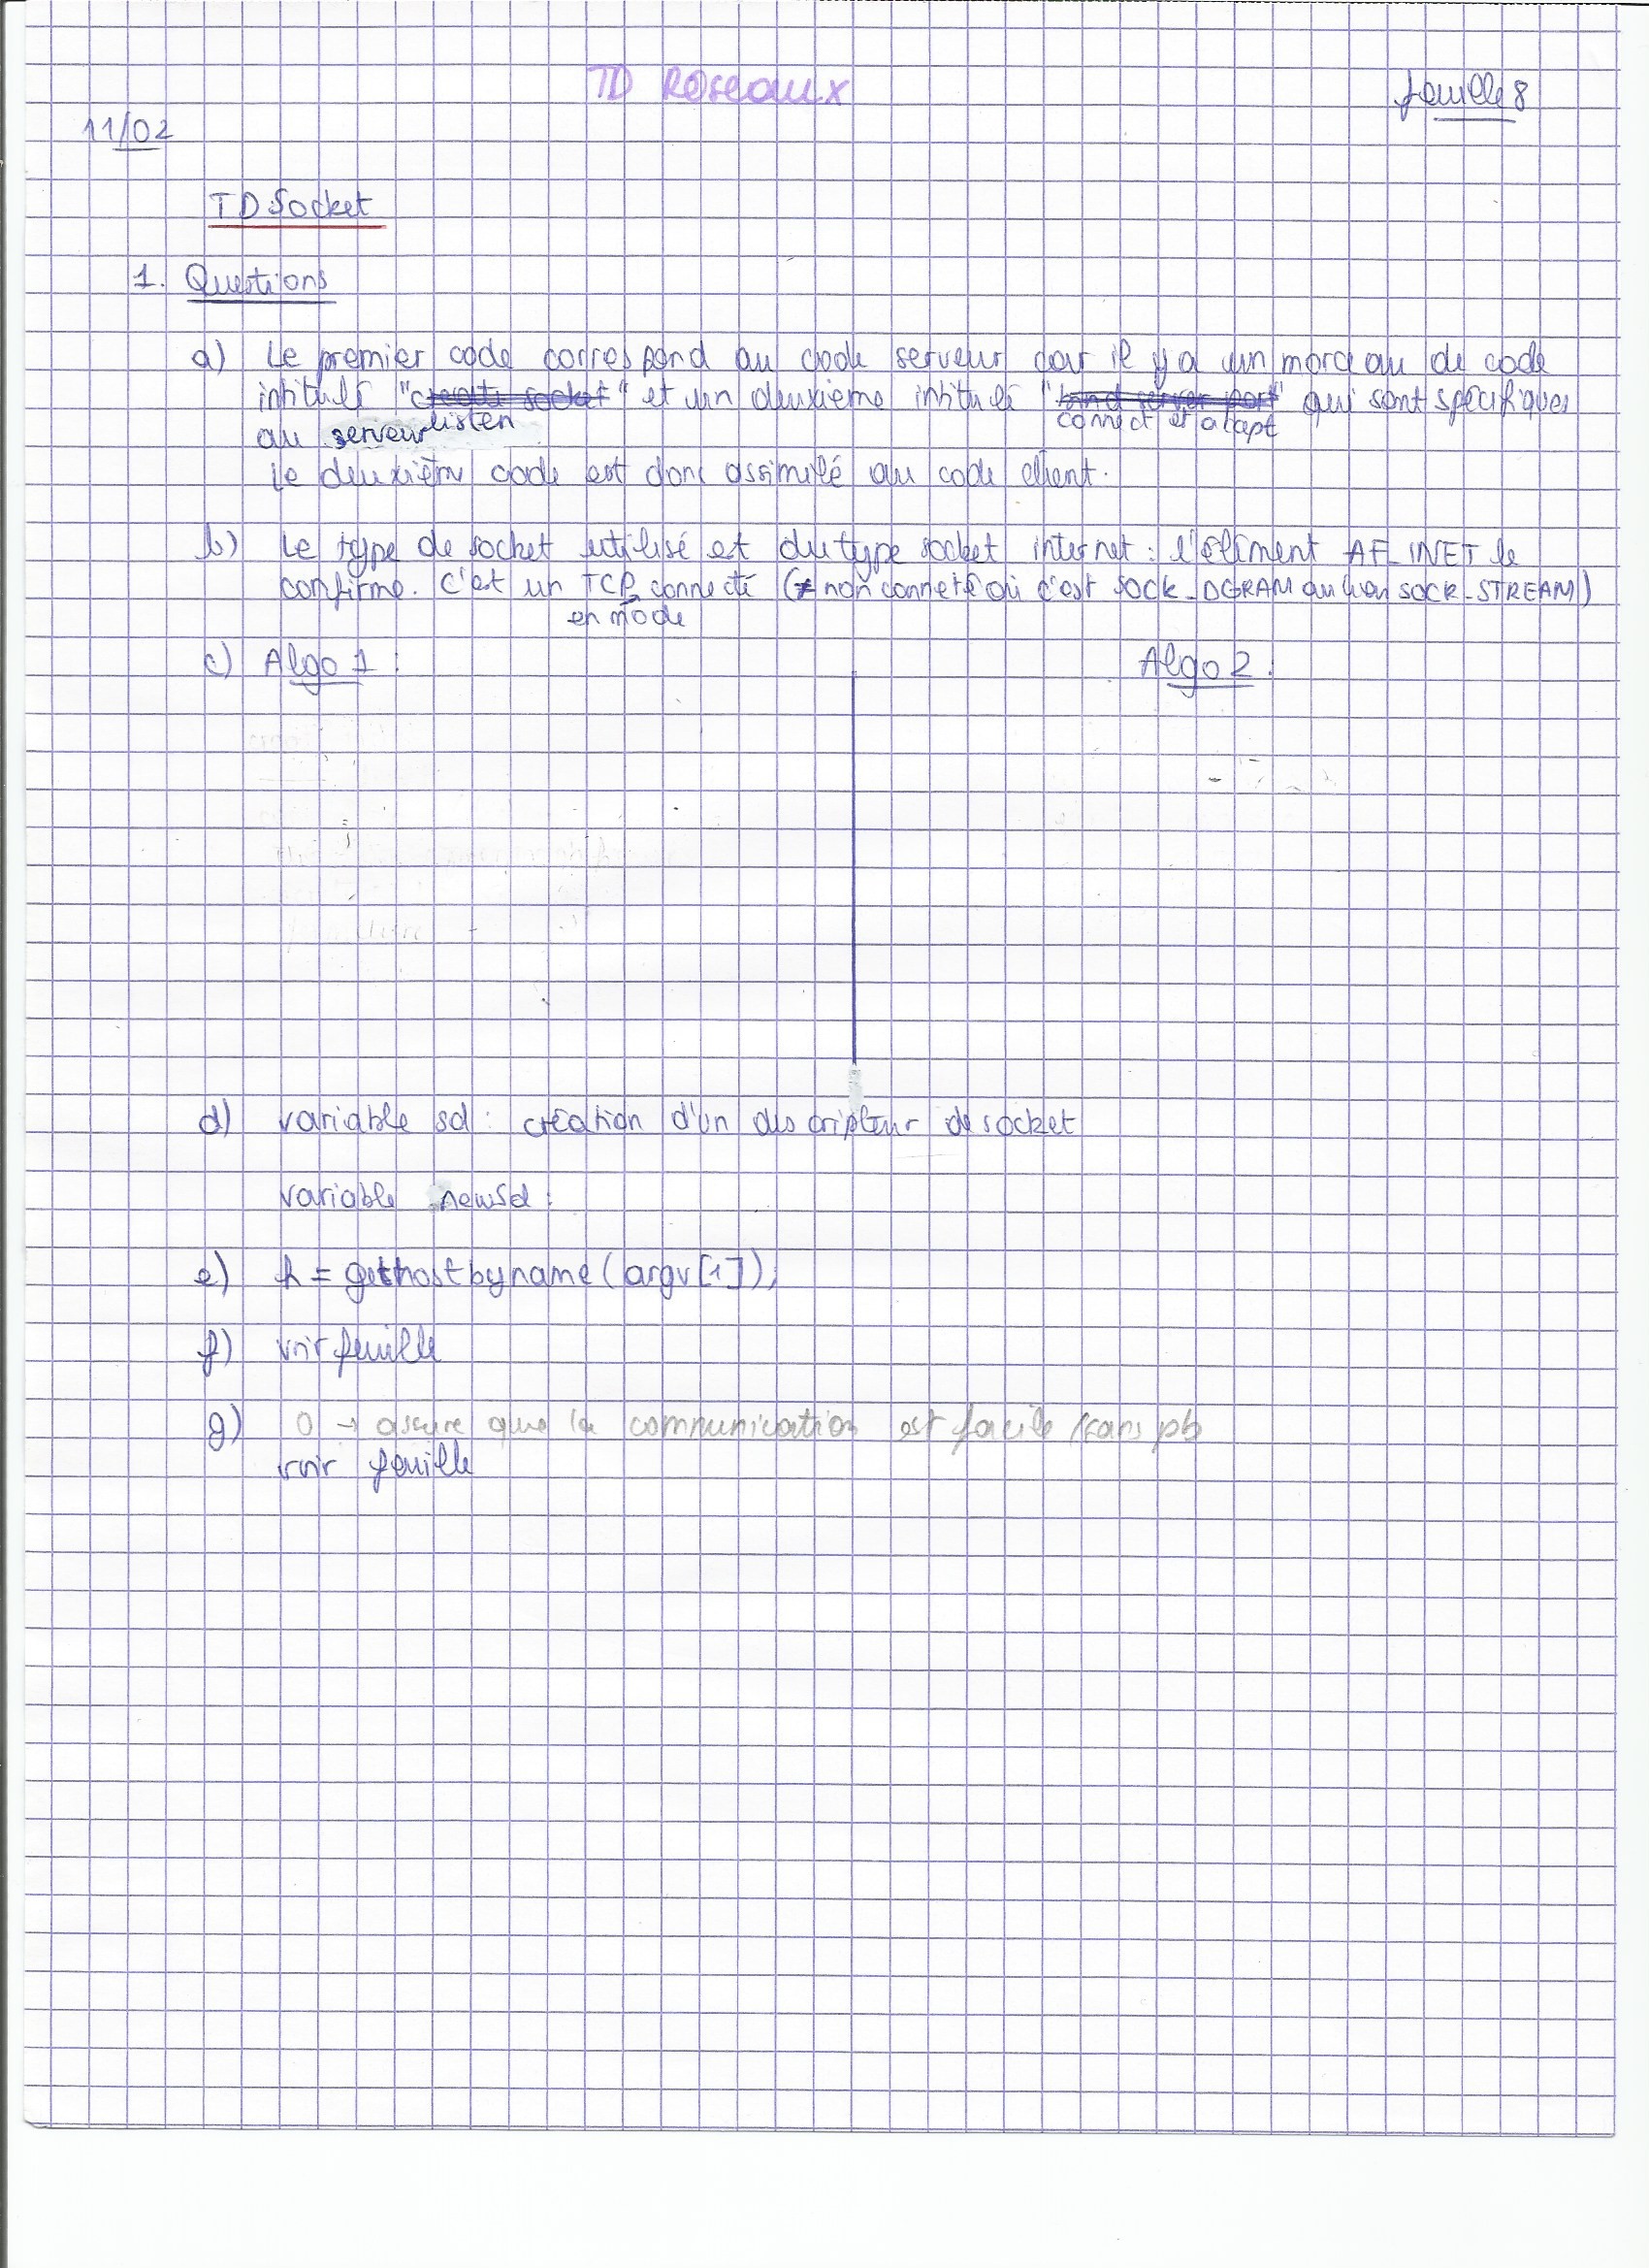 TD Réseaux
feuille 8
11/02
TD Socket
1. Questions
a) Le premier code correspond au code serveur car il y a un morceau de code
intitulé "create socket" et un deuxième intitulé "bind server port" qui sont spécifiques
listen
connect et acept
au serveur
Le deuxième code est donc assimilé au code client.
b) Le type de socket utilisé est du type socket internet : l'élément AF_INET le
confirme. C'est un TCP connecté (≠ non connecté où c'est SOCK_DGRAM au lieu SOCK_STREAM)
en mode
c) Algo 1 :
Algo 2 :
d) variable sd : création d'un descripteur de socket
variable newSd :
e) h = gethostbyname (argv[1]);
f) voir feuille
g) 0 → assure que la communication est facile / sans pb
voir feuille